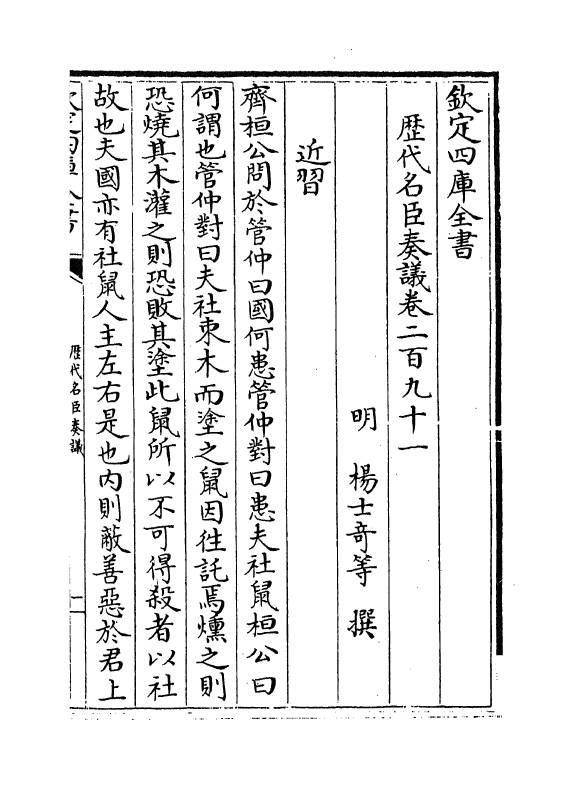 欽定四庫全書
歴代名臣奏議卷二百九十一
明 楊士奇等 撰
近習
齊桓公問於管仲曰國何患管仲對曰患夫社鼠桓公曰
何謂也管仲對曰夫社束木而塗之鼠因徃託焉燻之則
恐燒其木灌之則恐敗其塗此鼠所以不可得殺者以社
故也夫國亦有社鼠人主左右是也内則蔽善惡於君上
歴代名臣奏議
一